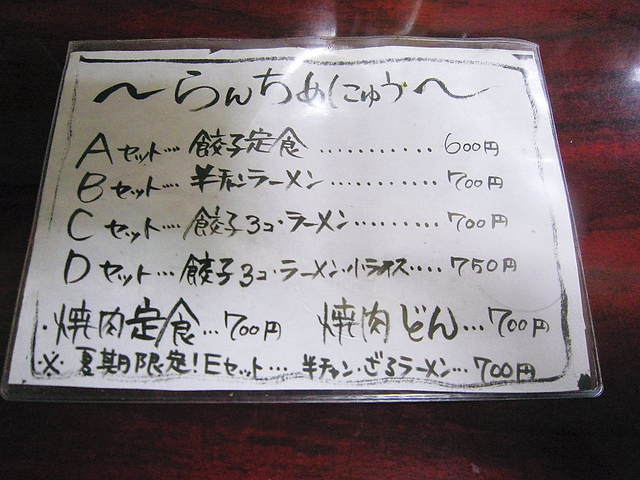 ～らんちめにゅう～
Aセット… 餃子定食 ………… 600円
Bセット… 半チャンラーメン ………… 700円
Cセット… 餃子3コ・ラーメン ……… 700円
Dセット… 餃子3コ・ラーメン・小ライス…… 750円
・焼肉定食…700円 焼肉どん…700円
※ 夏期限定!Eセット… 半チャン・ざるラーメン…700円